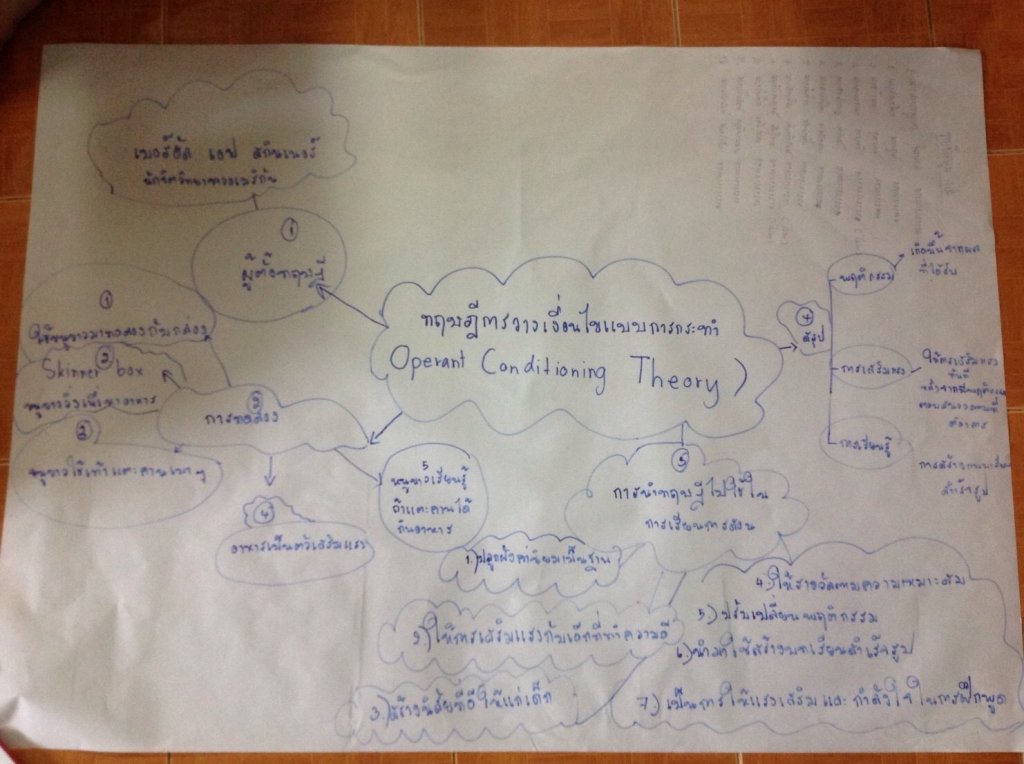 ทฤษฎีการวางเงื่อนไขแบบการกระทำ
Operant Conditioning Theory )
①
ผู้ตั้งทฤษฎี
เบอร์ฮัด เอฟ สกินเนอร์
นักจิตวิทยาชาวอเมริกัน
②
การทดลอง
①
ใช้หนูขาวมาทดลองกับกล่อง
Skinner box
②
หนูขาววิ่งเพื่อหาอาหาร
③
หนูขาวใช้เท้าแตะคานเบาๆ
④
อาหารเป็นตัวเสริมแรง
5
หนูขาวเรียนรู้
ถ้าแตะคานได้
กินอาหาร
③
การนำทฤษฎีไปใช้ใน
การเรียนการสอน
1.) ปลูกฝังค่านิยมพื้นฐาน
2) ให้การเสริมแรงกับเด็กที่ทำความดี
3) สร้างนิสัยที่ดีให้แก่เด็ก
4) ให้รางวัลตามความเหมาะสม
5) ปรับเปลี่ยนพฤติกรรม
6) นำมาใช้สร้างบทเรียนสำเร็จรูป
7) เป็นการให้แรงเสริมและกำลังใจในการฝึกพูด
④
สรุป
พฤติกรรม
เกิดขึ้นจากผล
ที่ได้รับ
การเสริมแรง
ให้การเสริมแรง
ทันที
ต้องการ
การเรียนรู้
สำเร็จรูป